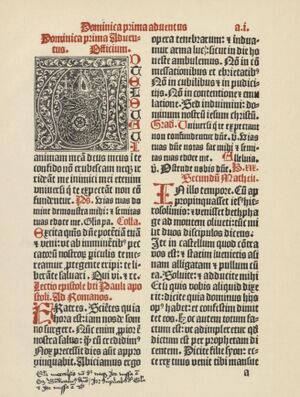 Dominica prima adventus a.i.
Dominica prima Adven
tus. Officium.
A
D T
E
L
E
V
A
V I
animam meā deus meus ī te
confido nō erubescam neqȝ ir
rideāt me inimici mei etenim
vniuersi q̄ te expectāt non cō
fundentur. Ps. Uias tuas do
mine demonstra mihi: ⁊ semi
tas tuas edoce me. Gl'ia pr̄i. Collā.
Excita q̄sum̄ dn̄e potētiā tuā
⁊ veni: vt ab imminētib' pec
catorum nostroꝝ piculis te me
reamur ꝓtegente eripi: te li
berāte saluari. Qui vi. ⁊ re.
Lectio epistole bt̄i Pauli apo
stoli. Ad Romanos.
FRatres. Scientes quia
hora est: iam nos de som
no surgere. Nūc enim ꝓpior ē
nostra salus: q̄ cū credidim'.
Nox precessit dies aūt appro
pinquabit. Abiiciamus ergo
opera tenebrarum: ⁊ indua
mur arma lucȝ: sicut in die ho
neste ambulemus. Nō in cō
messationibus et ebrietatib'
Nō in cubilibus ⁊ in pudici
tijs. Nō in contentione ⁊ emu
latione. Sed induimini: do
minum nostrum iesum christū.
Grad. Uniuersi q̄ te expectāt
non confundentur dn̄e. V. Uias
tuas dn̄e notas fac mihi: ⁊ se
mitas tuas edoce me. Alleluia.
V. Ostende nobis dn̄e. P. xxx.
Secundū Matheū.
IN illo tempore. Cū ap
propinquasset iesus hie
rosolymis: et venisset bethpha
ge ad montem oliueti: tunc mi
sit duos discipulos dicens.
Ite in castellum quod cōtra
vos est: et statim inuenietis asi
nam alligatam ⁊ pullum cū
ea. Soluite: ⁊ adducite mihi
Et si quis vobis aliquid dixe
rit: dicite quia dominus his
opus habet: et confestim dimit
tet eos. Hoc autem totum fac
tum est: vt adimpleretur qd
dictum est per prophetam di
centem. Dicite filie syon: ec
ce rex tuus venit tibi mansue
a